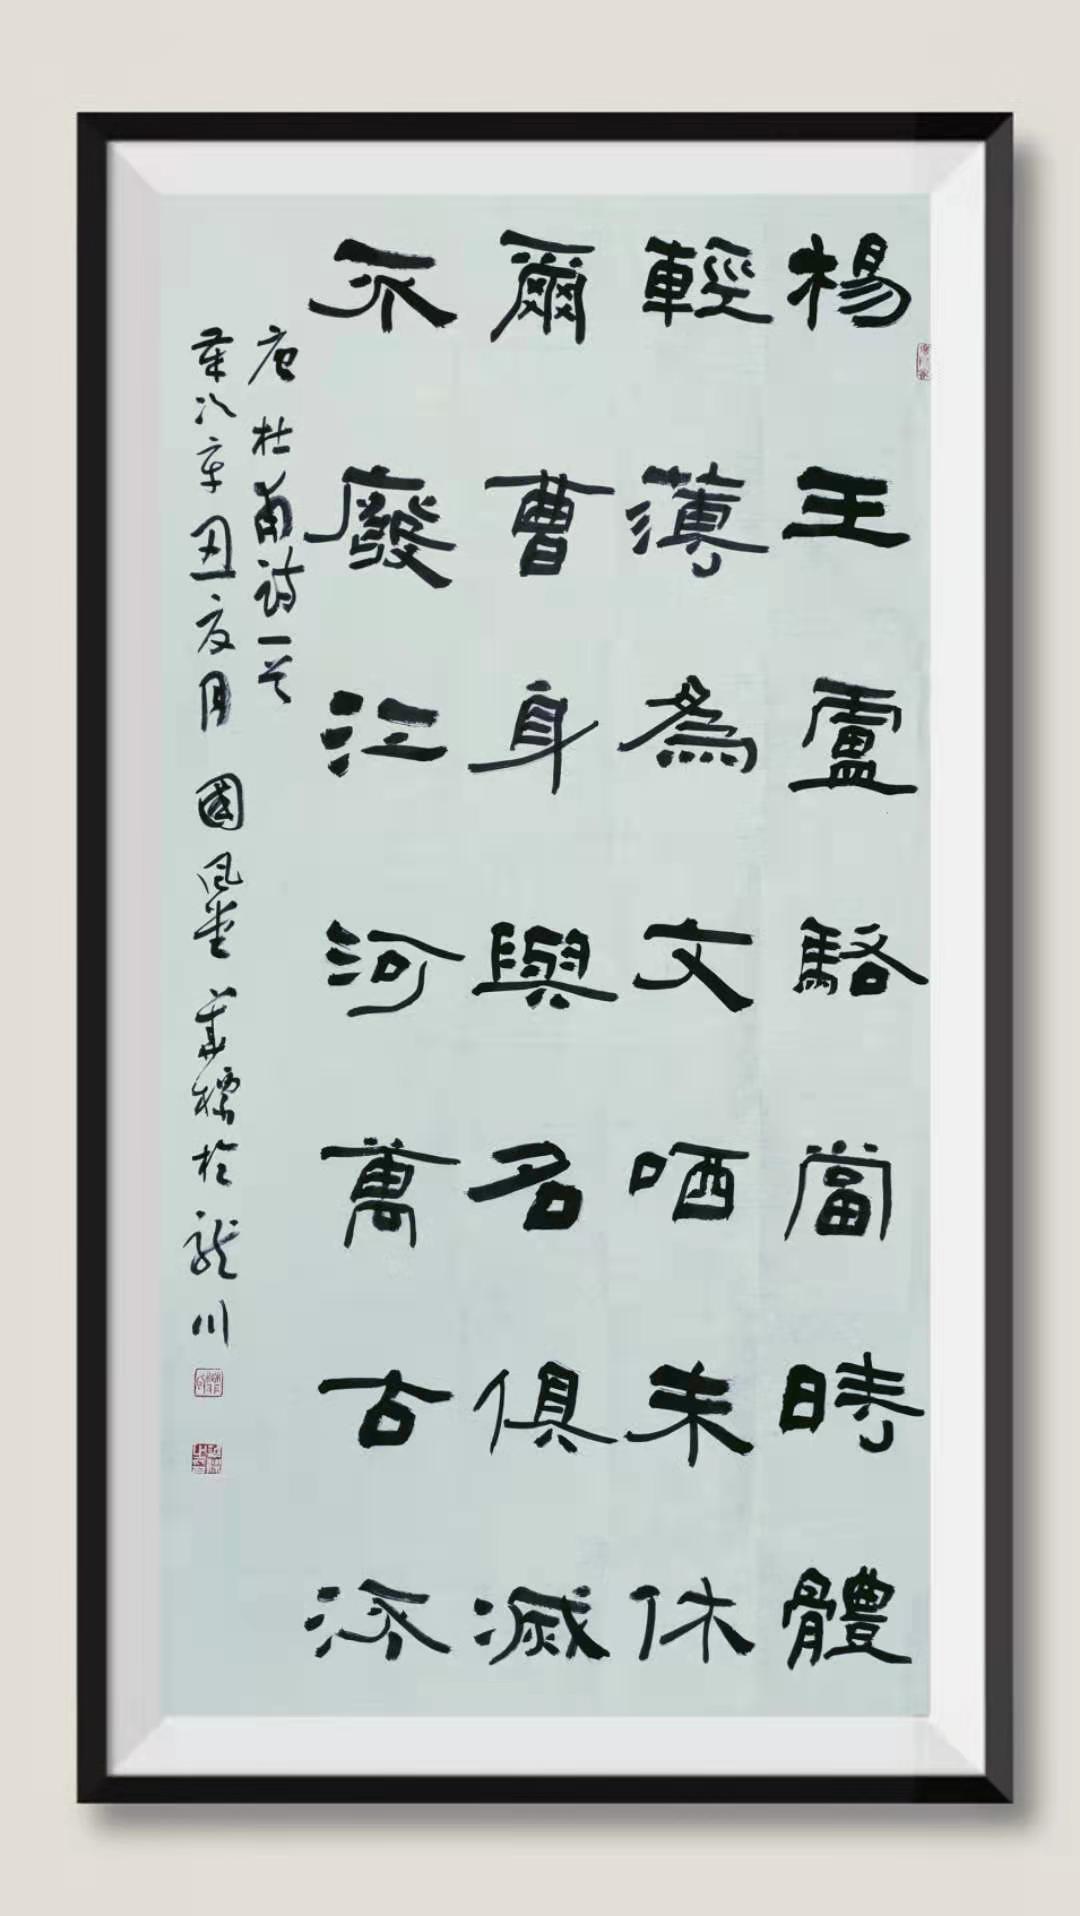 楊王盧駱當時體
輕薄為文哂未休
爾曹身與名俱滅
不廢江河萬古流
唐杜甫詩一首
歲次辛丑夏月國風堂 華標於龍川